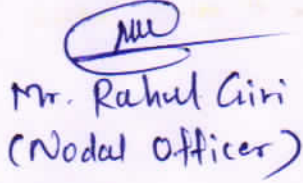 Mr. Rahul Giri
(Nodal Officer)